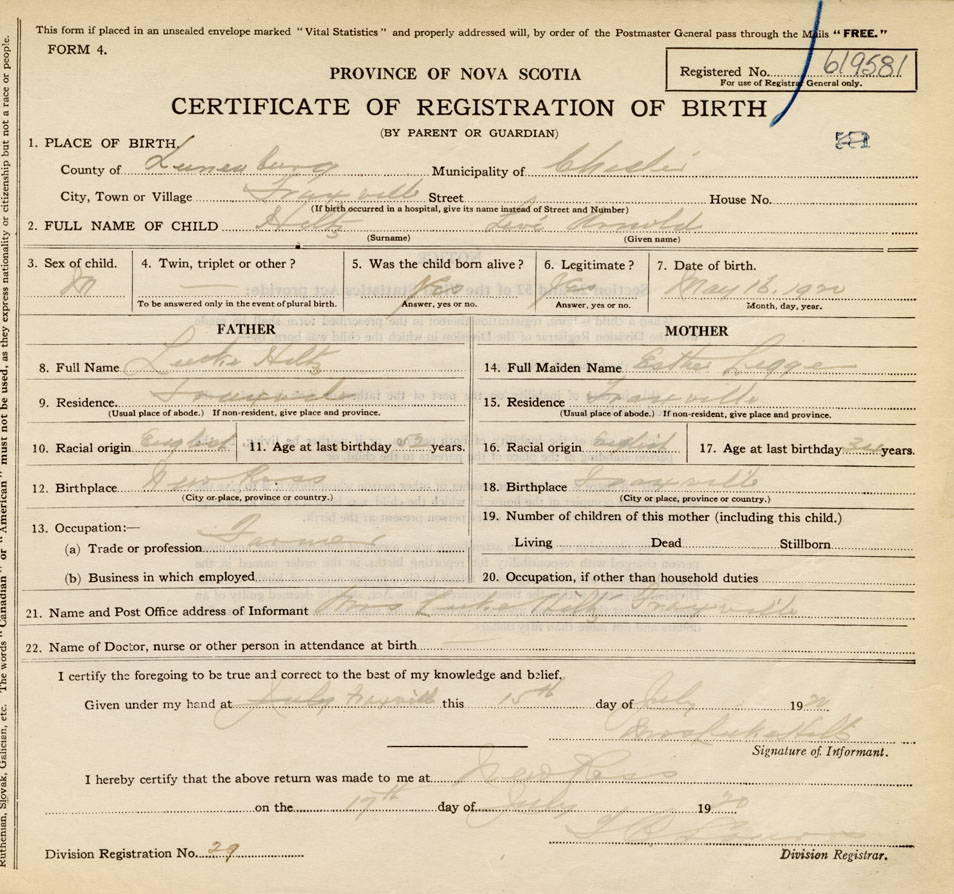 This form if placed in an unsealed envelope marked "Vital Statistics" and properly addressed will, by order of the Postmaster General pass through the Mails "FREE."
FORM 4.
PROVINCE OF NOVA SCOTIA
Registered No. 619581
For use of Registrar General only.
CERTIFICATE OF REGISTRATION OF BIRTH
(BY PARENT OR GUARDIAN)
1. PLACE OF BIRTH.
County of Lunenburg Municipality of Chester
City, Town or Village Fraxville Street House No.
(If birth occurred in a hospital, give its name instead of Street and Number)
2. FULL NAME OF CHILD Hiltz Levi Arnold
(Surname) (Given name)
3. Sex of child. 4. Twin, triplet or other? 5. Was the child born alive? 6. Legitimate? 7. Date of birth.
M — Yes Yes May 16, 1920
To be answered only in the event of plural birth. Answer, yes or no. Answer, yes or no. Month, day, year.
FATHER MOTHER
8. Full Name Luke Hiltz 14. Full Maiden Name Esther Legge
9. Residence. Fraxville 15. Residence Fraxville
(Usual place of abode.) If non-resident, give place and province. (Usual place of abode.) If non-resident, give place and province.
10. Racial origin English 11. Age at last birthday years. 16. Racial origin English 17. Age at last birthday years.
12. Birthplace New Ross 18. Birthplace Fraxville
(City or place, province or country.) (City or place, province or country.)
13. Occupation:— 19. Number of children of this mother (including this child.)
(a) Trade or profession Farmer Living Dead Stillborn
(b) Business in which employed 20. Occupation, if other than household duties
21. Name and Post Office address of Informant Mrs Luke Hiltz Fraxville
22. Name of Doctor, nurse or other person in attendance at birth
I certify the foregoing to be true and correct to the best of my knowledge and belief.
Given under my hand at July Fraxville this 15th day of July 1920
Mrs Luke Hiltz
Signature of Informant.
I hereby certify that the above return was made to me at New Ross
on the 17th day of July 1920
Division Registration No. 29 Division Registrar.
Ruthenian, Slovak, Galician, etc. The words "Canadian" or "American" must not be used, as they express nationality or citizenship but not a race or people.